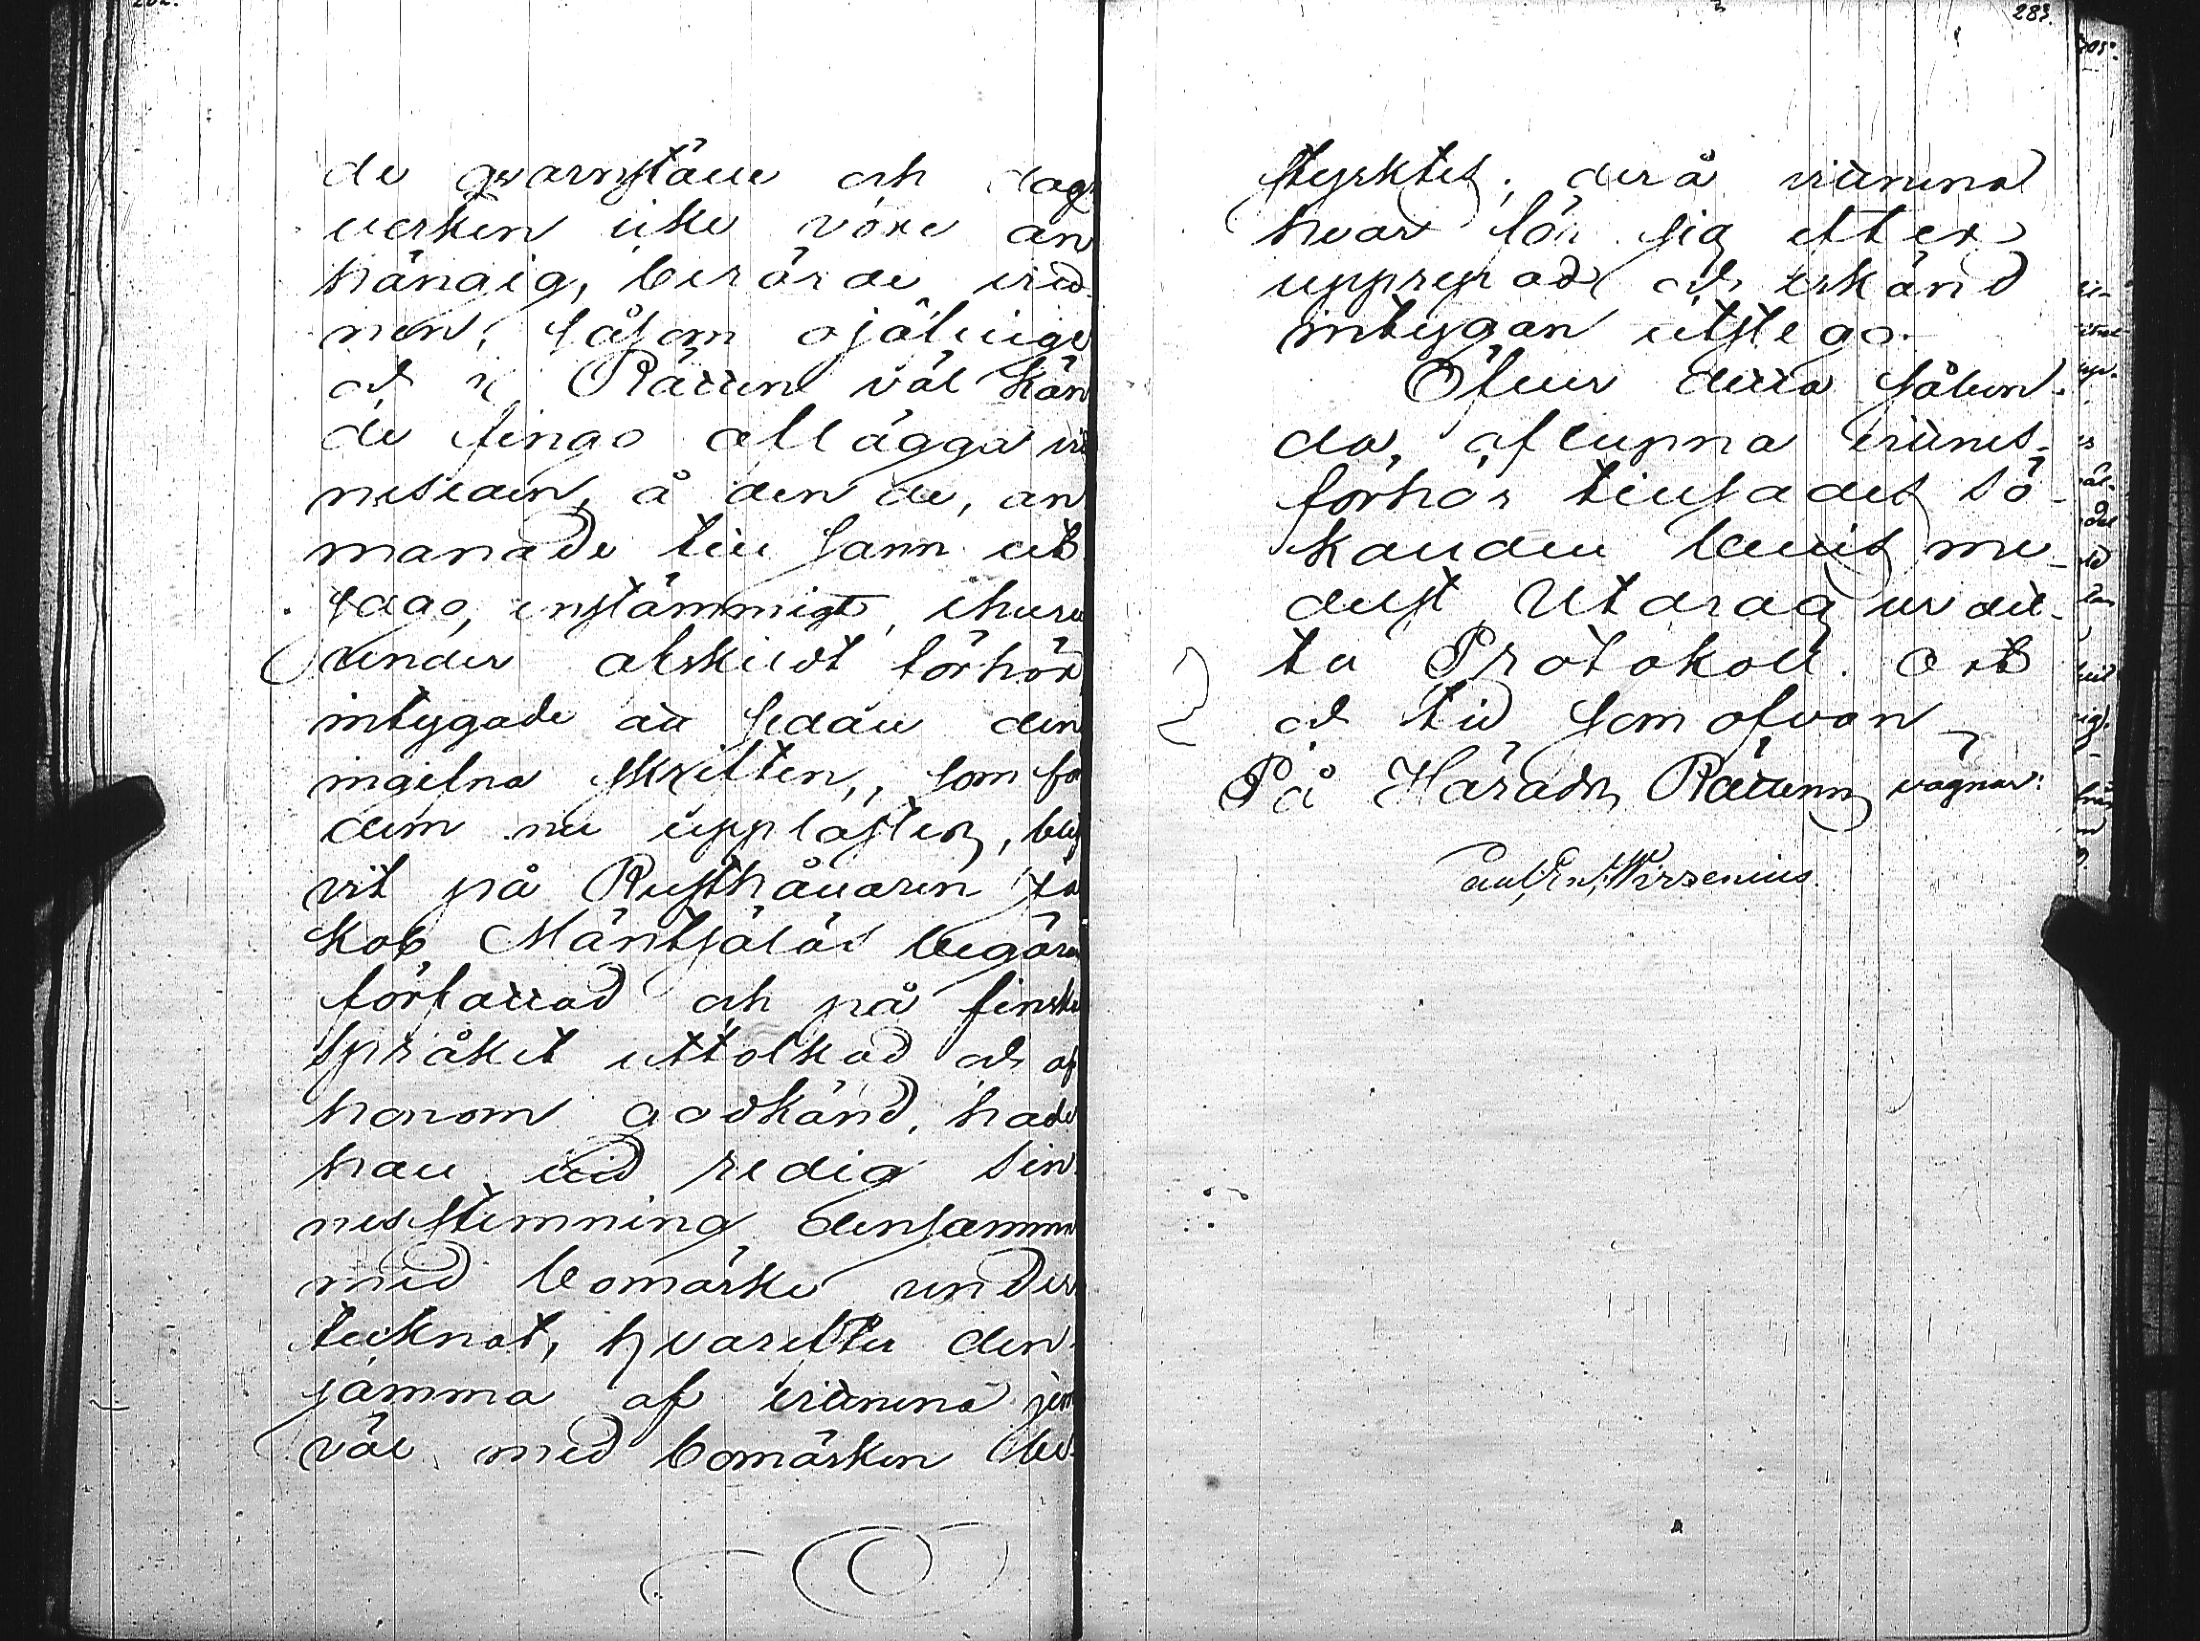 282.
de qvarnställe och dags
verken icke vore an
hängig, berörde vitt-
nen, såsom ojäfvige
och i Rätten väl kän
de fingo aflägga vitt
neseden, å den de, an
manade till sann ut
sago, enstämmigt, ehuru
under afskildt förhör,
intygade att sedan den
ingifna skriften, som för
dem nu upplästes, blif
vit på Rusthållaren Ja
kob Mäntsäläs begäran
författad och på finska
språket uttolkad och af
honom godkänd, hade
han vid redig sin
nesstämning densamma
med bomärke under
tecknat, hvarefter den-
samma af vittnena jem
väl med bomärken be-
283.
styrktes; derå vittnena
hvar för sig efter
upprepad och erkänd
intygan utstego.
Öfver detta sålun-
da, aflupna vittnes-
förhör tillsades sö-
kanden bevis me-
delst Utdrag ur det-
ta Protokoll. Ort
och tid som ofvan
På Härads Rättens vägnar:
Wirzenius